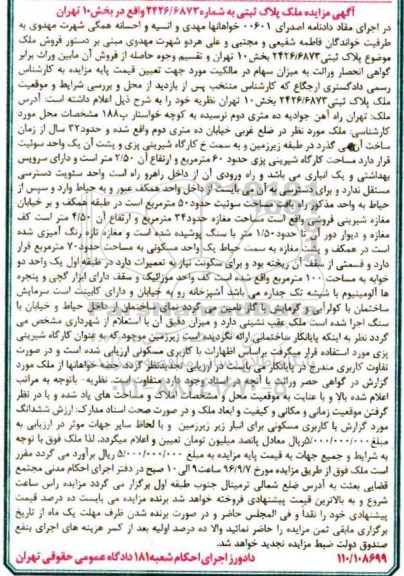 آگهی مزایده ملک پلاک ثبتی به شماره ۲۴۲۶/۶۸۷۳ واقع در بخش ۱۰ تهران
در اجرای مفاد دادنامه اصداری ۰۰۶۰۱ خواهانها مهدی و انسیه و احسانه همگی شهرت مهدوی به
طرفیت خواندگان فاطمه شفیعی و مجتبی و علی هردو شهرت مهدوی مبنی بر دستور فروش ملک
موضوع پلاک ثبتی ۲۴۲۶/۶۸۷۳ بخش ۱۰ تهران و تقسیم وجوه حاصله از فروش آن مابین وراث برابر
گواهی انحصار وراثت به میزان سهام در مالکیت مورد جهت تعیین قیمت پایه مزایده به کارشناس
رسمی دادگستری ارجاع که کارشناس منتخب پس از بازدید از محل و بررسی شرایط و موقعیت
ملک پلاک ثبتی ۲۴۲۶/۶۸۷۳ بخش ۱۰ تهران نظریه خود را به شرح ذیل اعلام داشته است: آدرس
ملک: تهران راه آهن جوادیه ده متری دوم نرسیده به کوچه خواستار پ ۱۸۸ مشخصات محل مورد
کارشناسی: ملک مورد نظر در ضلع غربی خیابان ده متری دوم واقع شده و حدود ۳۲ سال از زمان
ساخت آن می گذرد در طبقه زیرزمین و به سمت خ کارگاه شیرینی پزی و پشت آن یک واحد سوئیت
قرار دارد مساحت کارگاه شیرینی پزی حدود ۶۰ مترمربع و ارتفاع آن ۲/۵۰ متر است و دارای سرویس
بهداشتی و یک انباری می باشد و راه ورودی آن از داخل راهرو راه است واحد سئویت دسترسی
مستقل ندارد و برای دسترسی به آن می بایست از داخل واحد همکف عبور و به حیاط وارد و سپس از
حیاط به واحد مذکور راه یافت مساحت سوئیت حدود ۵۰ مترمربع است در طبقه همکف و بر خیابان
مغازه شیرینی فروشی واقع است مساحت مغازه حدود ۳۴ مترمربع و ارتفاع آن ۴/۵۰ متر است کف
مغازه و دیوار دور آن تا حدود ۱/۵۰ متر با سنگ پوشیده شده است و مغازه تازه رنگ آمیزی شده
است در همکف و پشت مغازه به سمت حیاط یک واحد مسکونی به مساحت حدود ۷۰ مترمربع قرار
دارد و قسمتی از سقف آن ریخته بود و برای سکونت نیاز به تعمیرات دارد در طبقه اول یک واحد دو
خوابه به مساحت ۱۰۰ مترمربع واقع شده است کف واحد موزائیک و سقف دارای ابزار گچی و پنجره
ها آلومینیوم با شیشه تک جداره می باشد آشپزخانه رو به خیابان و دارای کابینت است سرمایش
ساختمان با کولرآبی و گرمایش با گاز تامین می گردد نمای ساختمان از داخل حیاط و خیابان با
سنگ اجرا شده است ملک عقب نشینی دارد و میزان دقیق آن با استعلام از شهرداری مشخص می
گردد نظر به اینکه پایانکار ساختمانی ارائه نگردیده است زیرزمین موجود که به عنوان کارگاه شیرینی
پزی مورد استفاده قرار میگرفت براساس اظهارات با کاربری مسکونی ارزیابی شده است و در صورت
تفاوت کاربری مندرج در پایانکار می بایست در ارزیابی تجدیدنظر گردد. سهم خواهانها از ملک مورد
گزارش در گواهی حصر وراثت با آنچه در اسناد وجود دارد متفاوت است. نظریه- باتوجه به مراتب
اعلام شده بالا و با عنایت به موقعیت محل و مشخصات املاک و مساحت های یاد شده و با در نظر
گرفتن موقعیت زمانی و مکانی و کیفیت و ابعاد ملک و در صورت صحت اسناد مدارک: ارزش ششدانگ
مورد گزارش با کاربری مسکونی برای انبار زیر زیرزمین و با لحاظ سایر جهات موثر در ارزیابی به
مبلغ ۵/۰۰۰/۰۰۰/۰۰۰ ریال معادل پانصد میلیون تومان تعیین و اعلام میگردد. لذا ملک فوق با توجه
به شرایط و جمیع جهات به قیمت پایه مزایده به مبلغ ۵/۰۰۰/۰۰۰/۰۰۰ ریال برآورد می گردد مقرر
است ملک فوق از طریق مزایده مورخ ۹۶/۹/۷ ساعت ۹ الی ۱۰ صبح در دفتر اجرای احکام مدنی مجتمع
قضایی بعثت به آدرس ضلع شمالی ترمینال جنوب طبقه اول برگزار می گردد مزایده راس ساعت
شروع و به بالاترین قیمت پیشنهادی فروخته خواهد شد برنده مزایده می بایست ده درصد قیمت
پیشنهادی خود را نقداً و فی المجلس حاضر و در صورت برنده شدن ظرف مهلت یک ماه از تاریخ
برگزاری مابقی ثمن مزایده را حاضر نمائید والا ده درصد اولیه بعد از کسر هزینه های اجرای بنفع
صندوق دولت ضبط مزایده تجدید خواهد شد.
۱۱۰/۱۰۸۶۹۹ دادورز اجرای احکام شعبه ۱۸۱ دادگاه عمومی حقوقی تهران